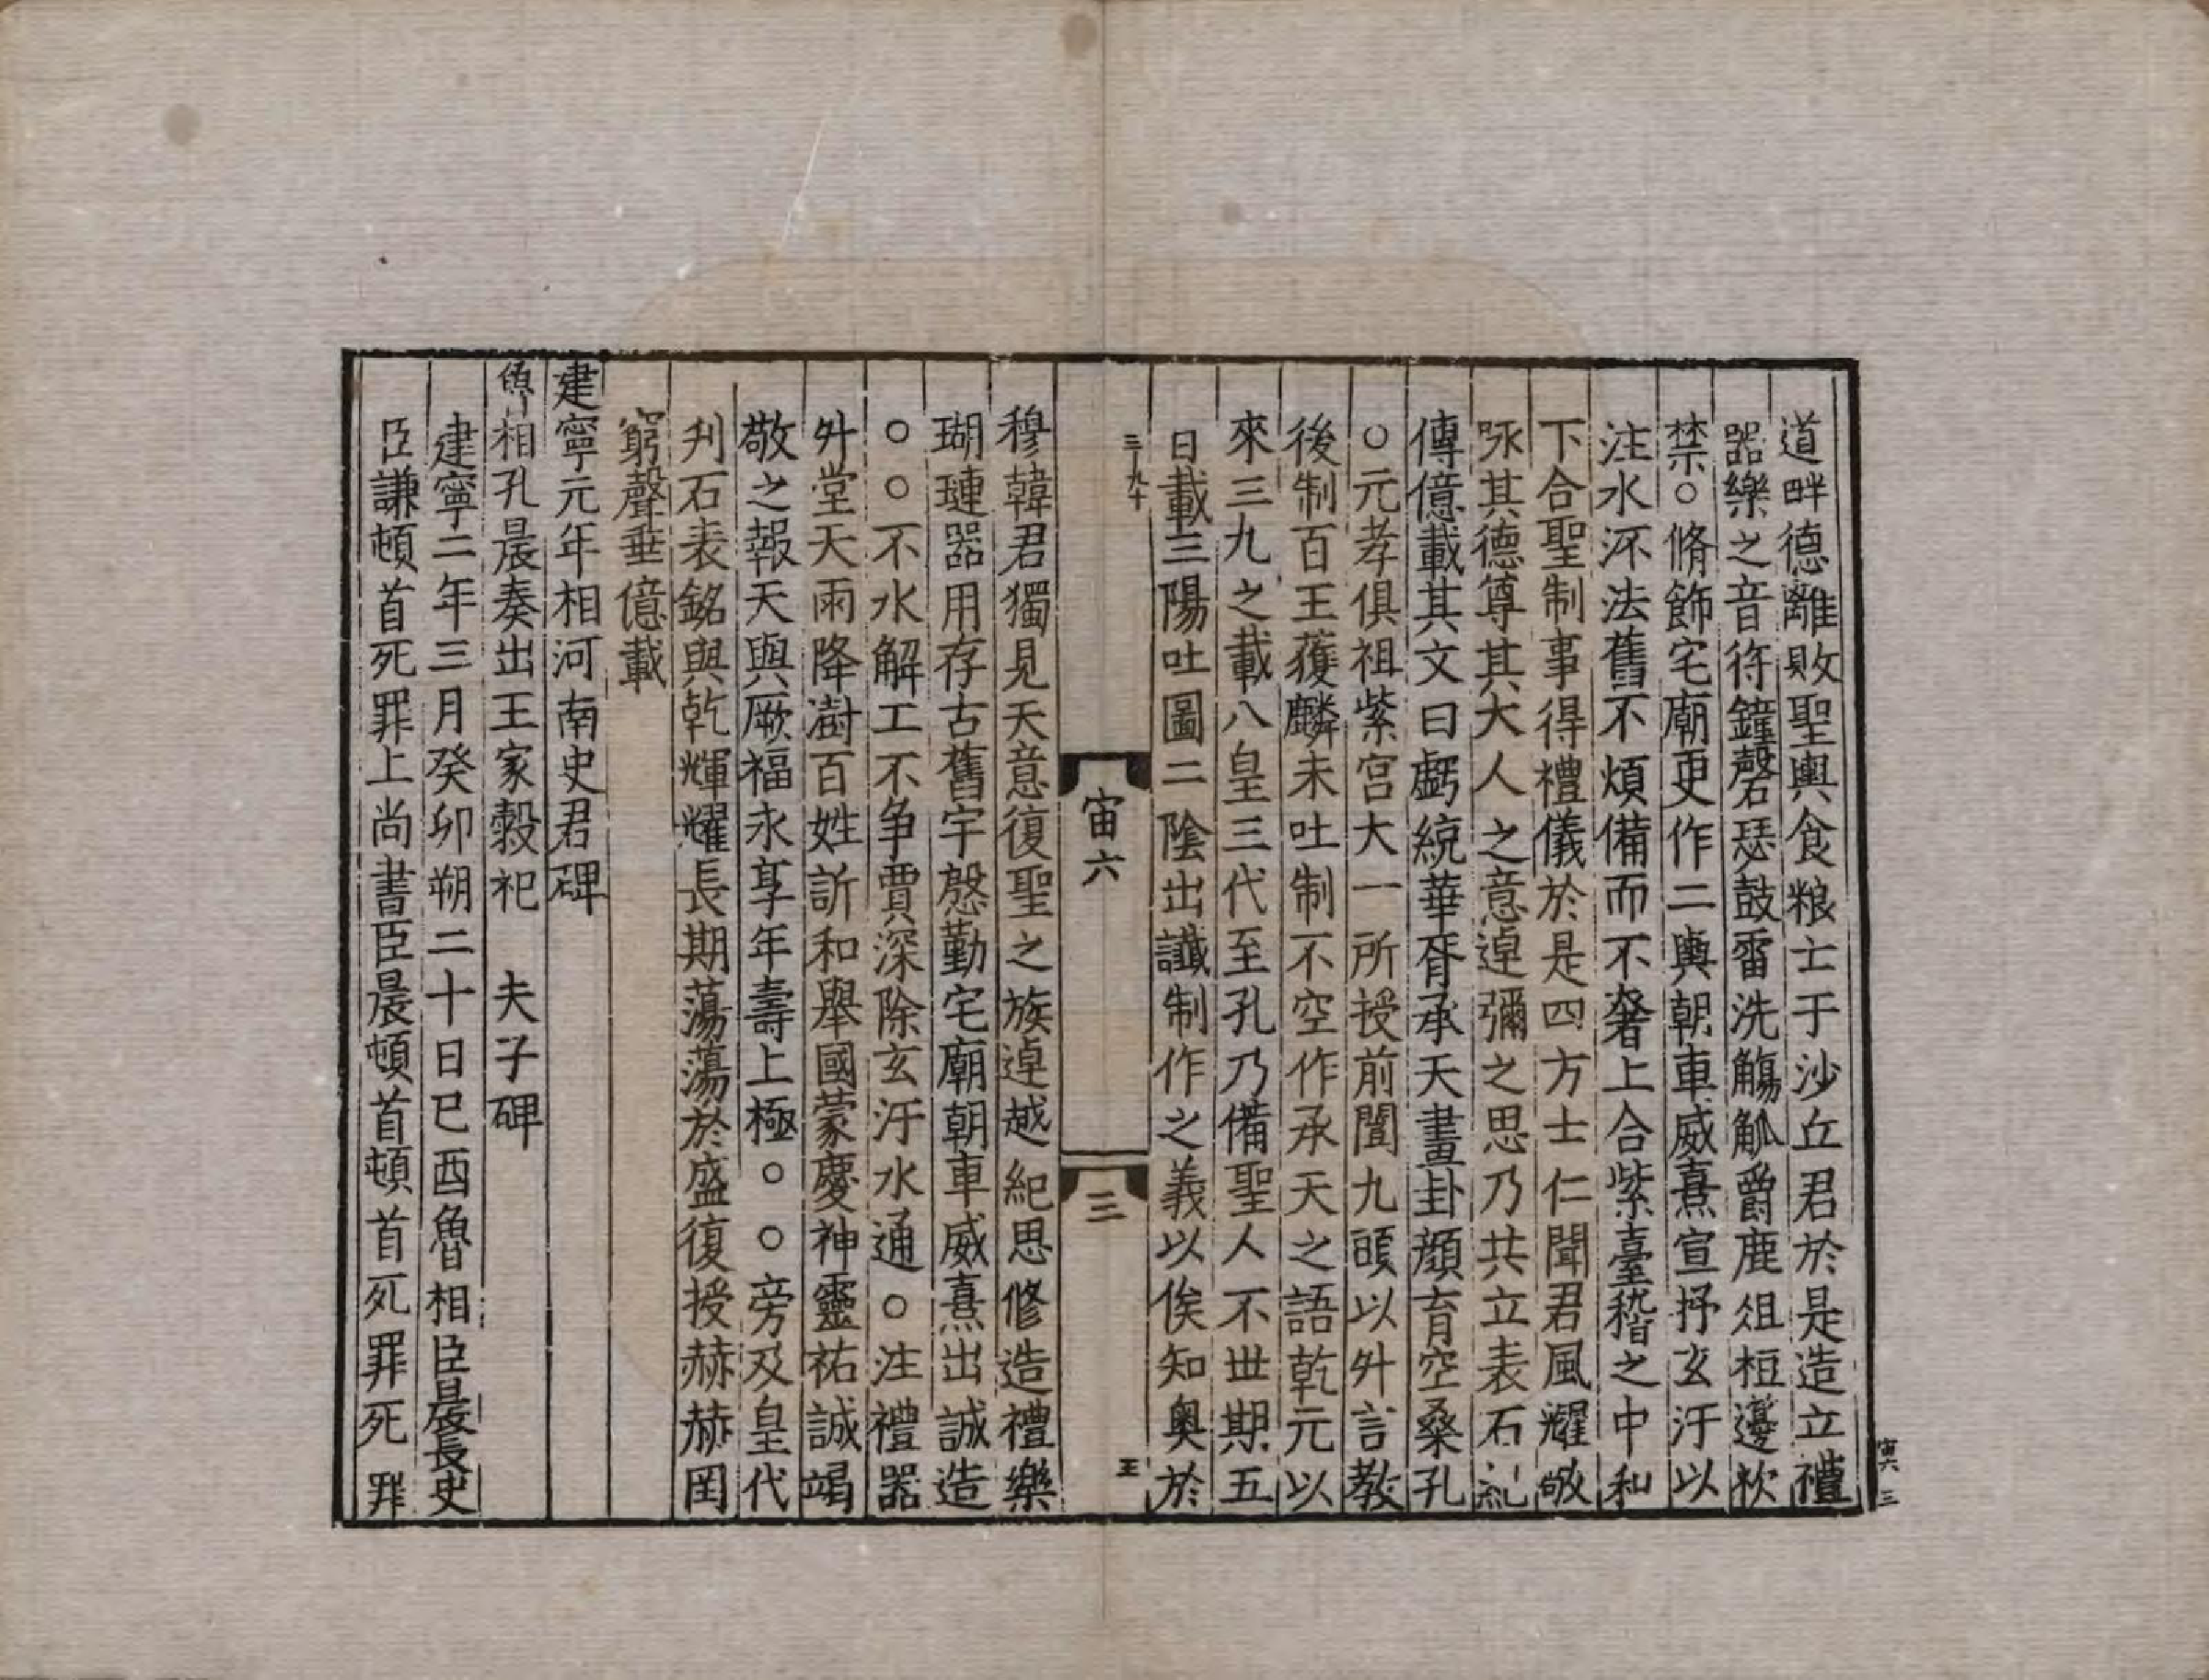 道畔德離敗聖輿食粮士于沙丘君於是造立禮
器樂之音符鐘磬瑟鼓雷洗觴觚爵鹿俎桓籩柉
禁○脩飾宅廟更作二輿朝車威熹宣抒玄汙以
注水沠法舊不煩備而不奢上合紫臺稽之中和
下合聖制事得禮儀於是四方士仁聞君風耀敬
㖟其德尊其大人之意逴彌之思乃共立表石紀
傳億載其文曰戲統華胥承天畫卦顔育空桑孔
○元孝俱祖紫宫大一所授前闓九頭以升言教
後制百王獲麟未吐制不空作承天之語乾元以
來三九之載八皇三代至孔乃備聖人不世期五
日載三陽吐圖二陰出讖制作之義以俟知奥於
三九十
宙六
三
王
穆韓君獨見天意復聖之族逴越紀思修造禮樂
瑚璉器用存古舊宇慇勤宅廟朝車威熹出誠造
○○不水解工不争賈深除玄汙水通○注禮器
升堂天雨降澍百姓訢和舉國蒙慶神靈祐誠竭
敬之報天與厥福永享年壽上極○○旁及皇代
刋石表銘與乾輝耀長期蕩蕩於盛復授赫赫罔
窮聲垂億載
建寧元年相河南史君碑
魚相孔晨奏出王家榖祀　夫子碑
建寧二年三月癸卯朔二十日巳酉魯相臣晨長史
臣謙頓首死罪上尚書臣晨頓首頓首死罪死罪
寅六　三